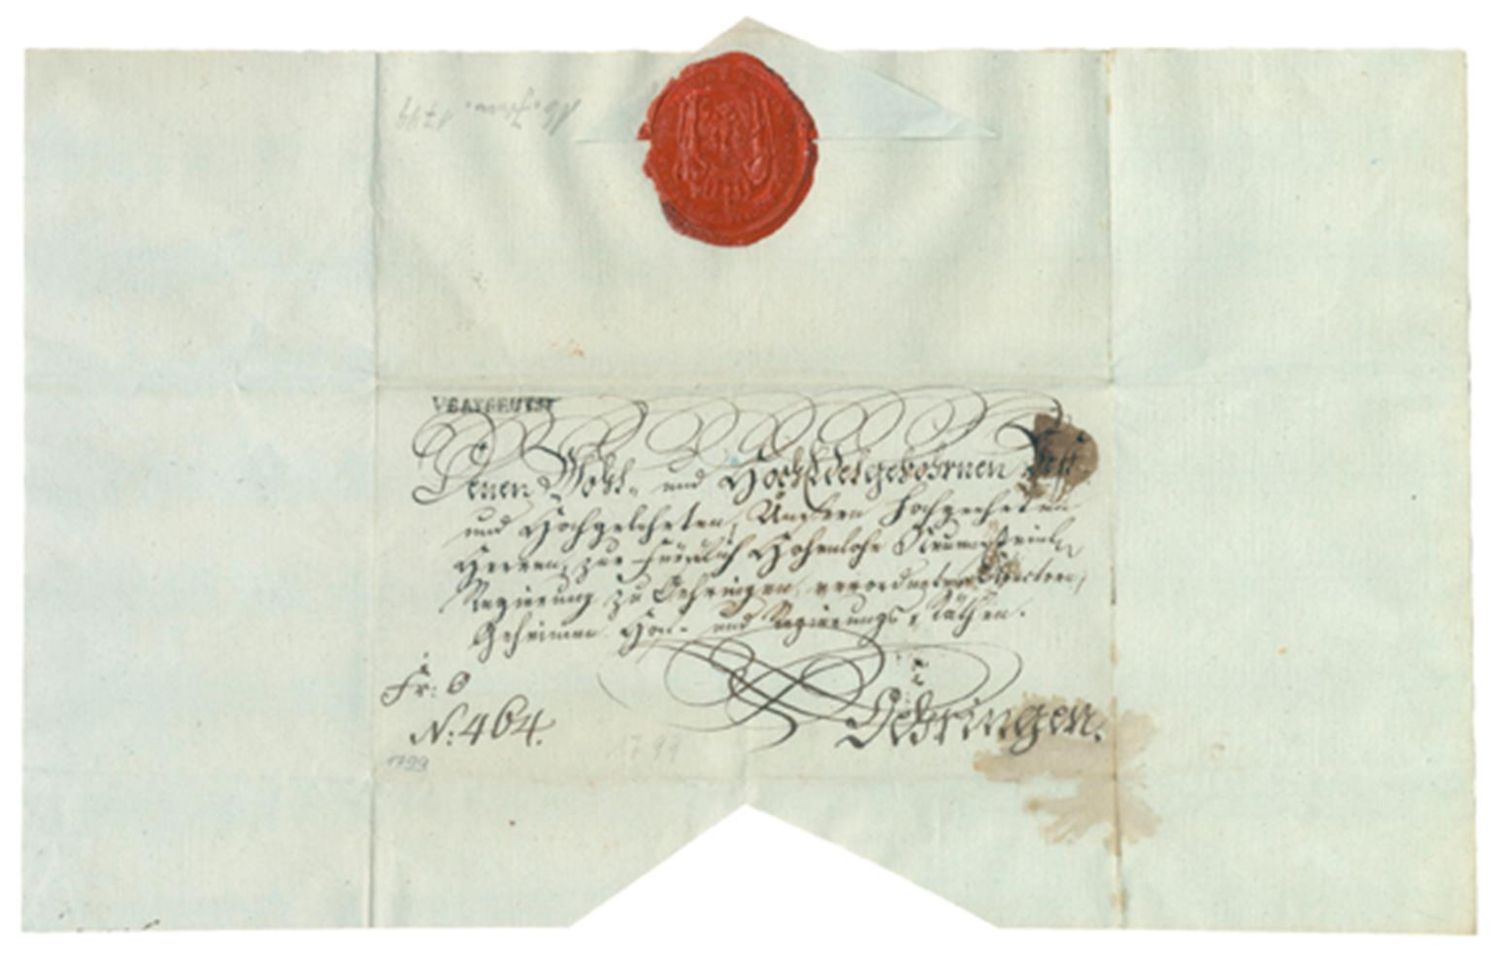 1799
V.BAYREUTH
Denen Wohl- und HochEdelgebohrnen Vest
und Hochgelehrten, Unsern Hochgeehrten
Herren, zur Fürstlich Hohenlohe
Regierung zu Oehringen, verordneten Directori,
Geheimen Hof- und Regierungs, Räthen.
Fr: 6
N: 464.
Oehringen.
1799
1799